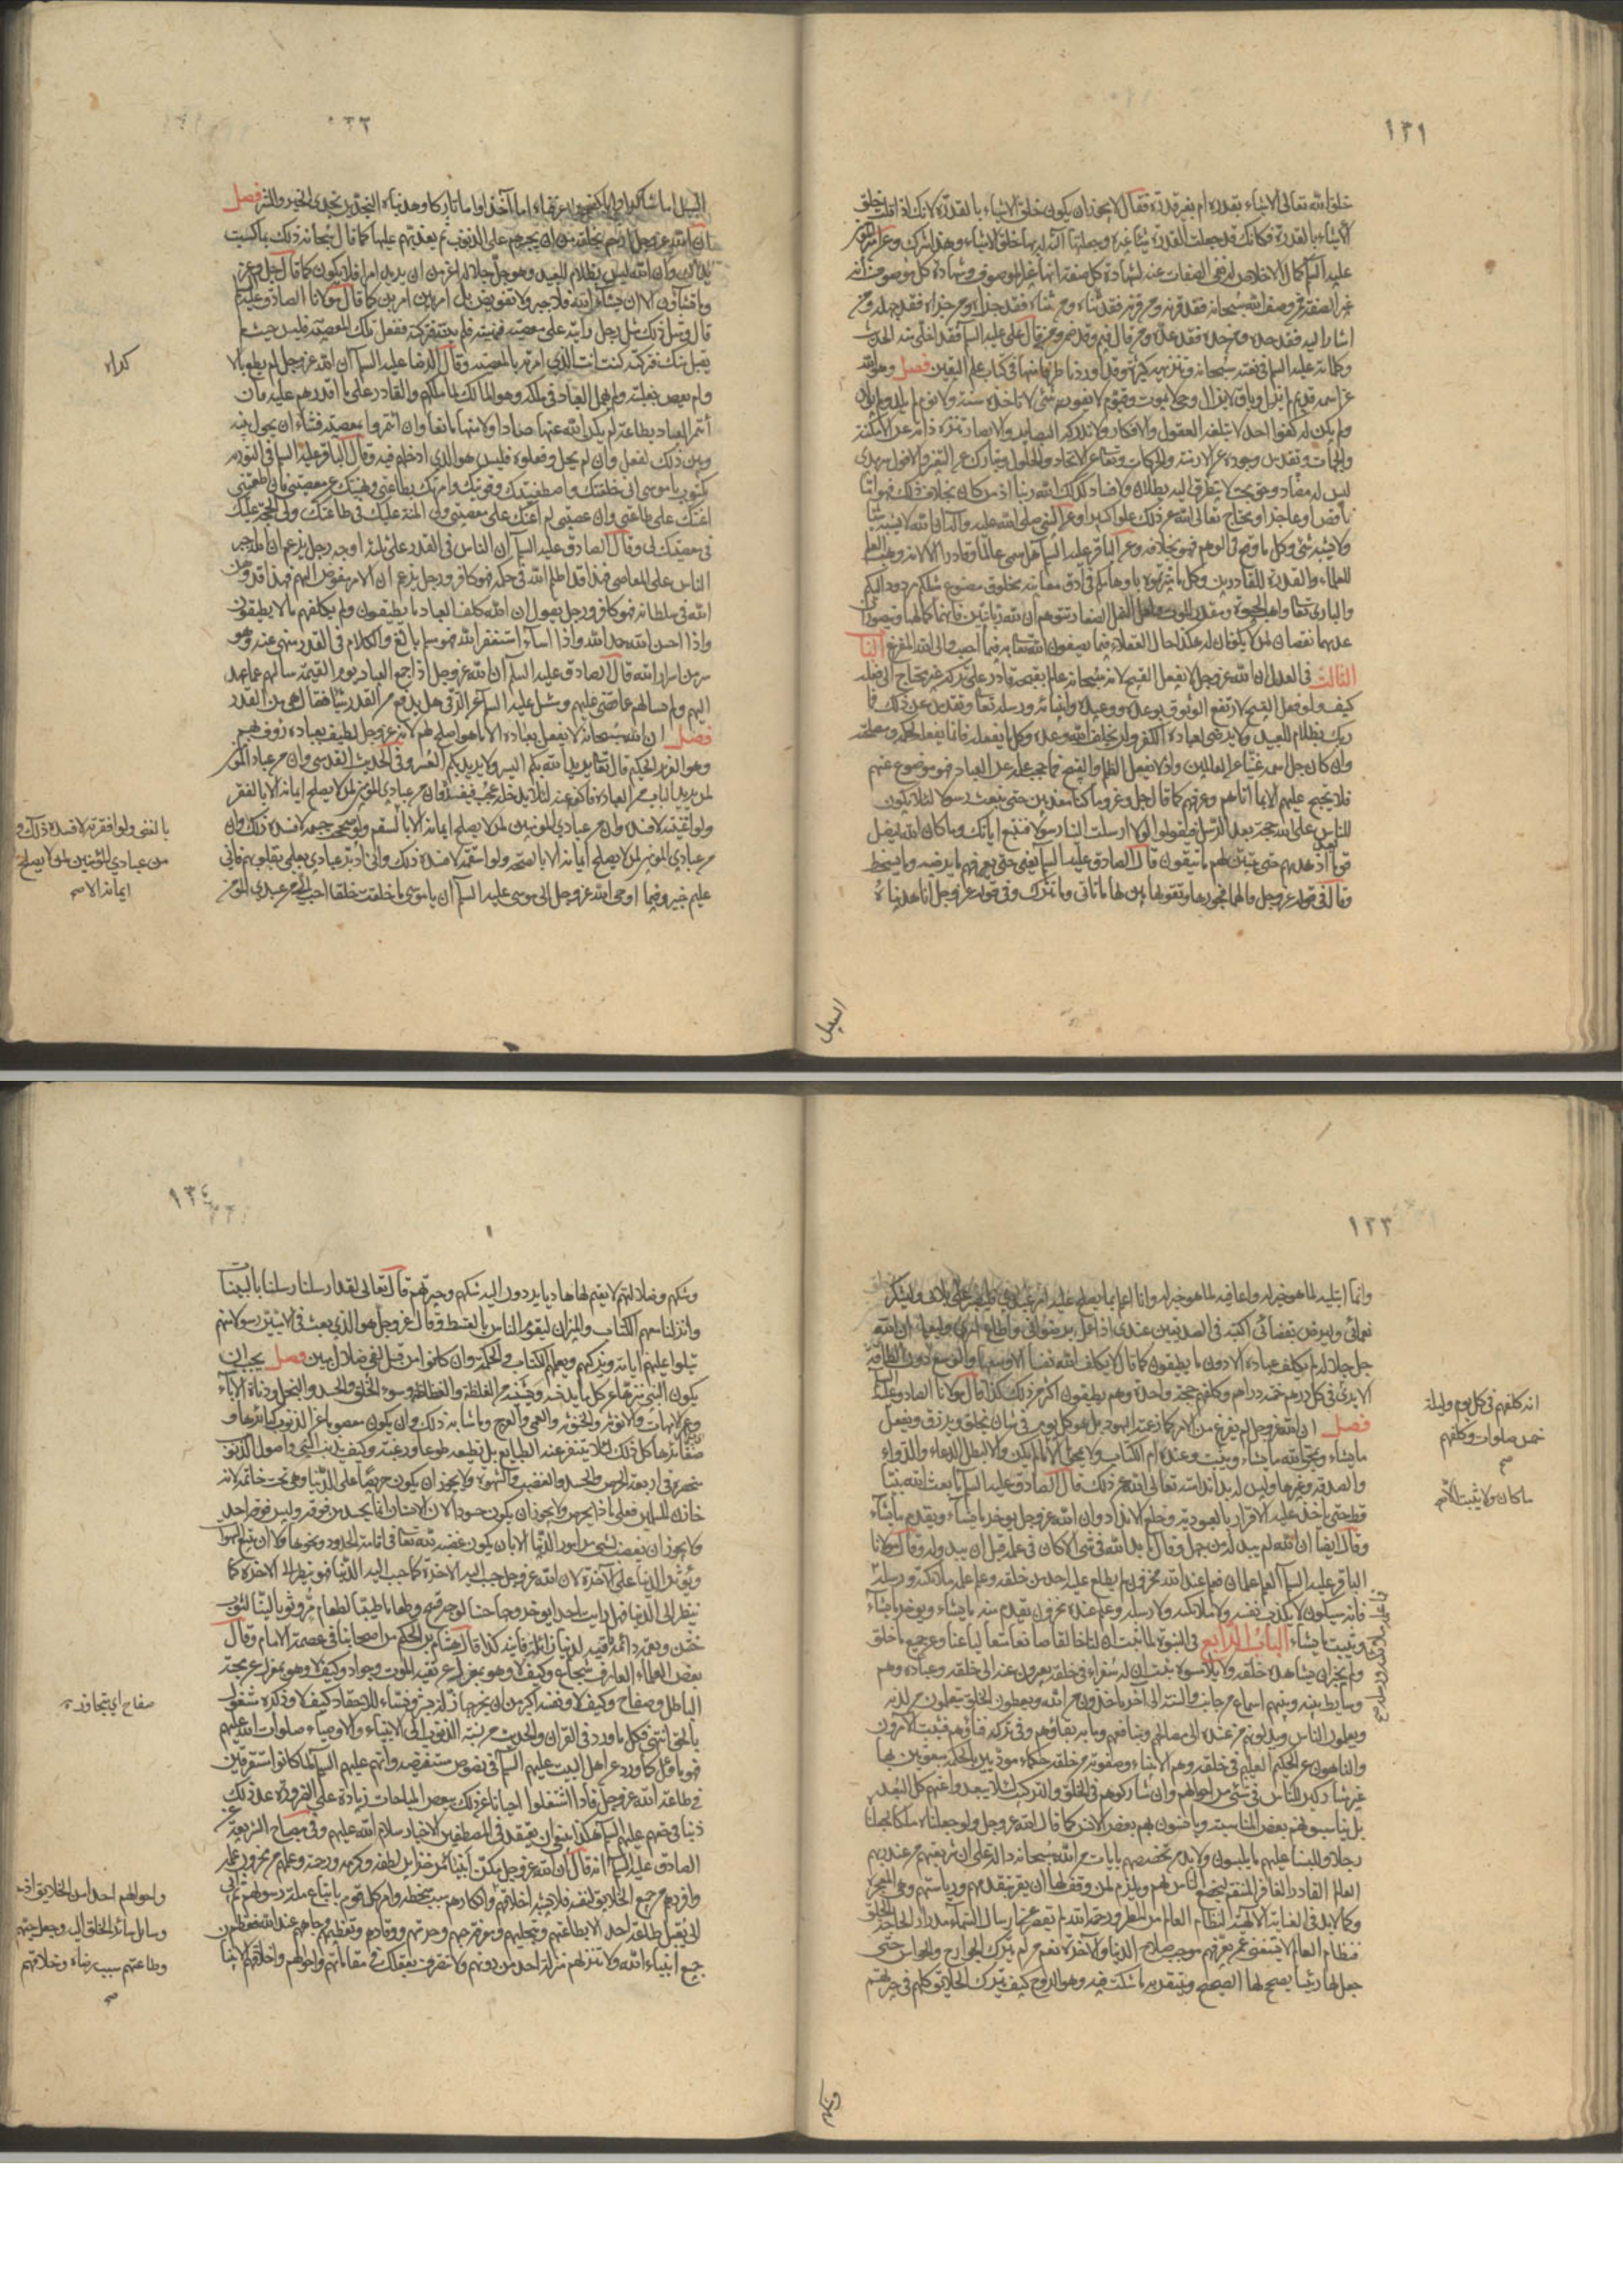 ١٣١
خلق الله تعالى الاشياء بقدرة ام بغير قدرة فقال لا يجوز ان يكون خلق الاشياء بالقدرة لانك اذا قلت خلق
الاشياء بالقدرة فكانك قد جعلت القدرة شيئا غيره وجعلتها آلة له بها خلق الاشياء وهذا شرك وعن امير المؤمنين
عليه السلام كمال الاخلاص له نفي الصفات عنه لشهادة كل صفة انها غير الموصوف وشهادة كل موصوف انه
غير الصفة فمن وصف الله سبحانه فقد قرنه ومن قرنه فقد ثناه ومن ثناه فقد جزاه ومن جزاه فقد جهله ومن
اشار اليه فقد حده ومن حده فقد عده ومن قال فيم فقد ضمنه ومن قال على م فقد اخلى منه الحديث
وكلماته عليه السلام في نعته سبحانه وتنزيهه كثيرة وقد اوردنا طرفا منها في كتاب علم اليقين فصل وهو الله
عز اسمه قديم لم يزل وباق لا يزال وحي لا يموت وقيوم لا يفوته شئ لا تأخذه سنة ولا نوم لم يلد ولم يولد
ولم يكن له كفوا احد لا تبلغه العقول والافكار ولا تدركه البصائر والابصار تنزه ذاته عن الامكنة
والجهات وتقدس وجوده عن الازمنة والحركات وتعالى عن الاتحاد والحلول وتبارك عن التغير والافول سرمدي
ليس له مضاد وحق بحت لا يتطرق اليه بطلان ولا فساد كذلك الله ربنا اذ من كان بخلاف ذلك فهو اما
ناقص او عاجز او محتاج تعالى الله عن ذلك علوا كبيرا وعن النبي صلى الله عليه وآله ان الله لا يشبه شيئا
ولا يشبهه شئ وكل ما وقع في الوهم فهو بخلافه وعن الباقر عليه السلام هل سمي عالما وقادرا الا لانه وهب العلم
للعلماء والقدرة للقادرين وكل ما ميزتموه باوهامكم في ادق معانيه مخلوق مصنوع مثلكم مردود اليكم
والباري تعالى واهب الحيوة ومقدر الموت ولعل النمل الصغار تتوهم ان لله زبانيتين فانهما كمالها وتتصور ان
عدمهما نقصان لمن لا يكونان له هكذا حال العقلاء فيما يصفون الله تعالى به فيما احسب والى الله المفزع الباب
الثالث في العدل ان الله عز وجل لا يفعل القبيح لانه سبحانه عالم بقبحه قادر على تركه غير محتاج الى فعله
كيف ولو فعل القبيح لارتفع الوثوق بوعده ووعيده وانبيائه ورسله تعالى وتقدس عن ذلك فما
ربك بظلام للعبيد ولا يرضى لعباده الكفر ولن يخلف الله وعده وكل ما يفعله فانما يفعل لحكمة ومصلحة
وان كان جل اسمه غنيا عن العالمين واذ لا يفعل الظلم والقبيح فما حجب علمه عن العباد فهو موضوع عنهم
فلا يحتج عليهم الا بما آتاهم وعرفهم كما قال جل وعز وما كنا معذبين حتى نبعث رسولا لئلا يكون
للناس على الله حجة بعد الرسل فيقولوا لولا ارسلت الينا رسولا فنتبع آياتك وما كان الله ليضل
قوما بعد اذ هداهم حتى يبين لهم ما يتقون قال الصادق عليه السلام يعني حتى يعرفهم ما يرضيه وما يسخطه
وقال في قوله عز وجل فالهمها فجورها وتقويها بين لها ما تأتي وما تترك وفي قوله عز وجل انا هديناه
السبيل
١٣٢
السبيل اما شاكرا واما كفورا عرفناه اما آخذا واما تاركا وهديناه النجدين نجدي الخير والشر فصل
ان الله عز وجل ارحم بخلقه من ان يجبرهم على الذنوب ثم يعذبهم عليها كما قال سبحانه ذلك بما كسبت
يداك وان الله ليس بظلام للعبيد وهو جل جلاله اعز من ان يريد امرا فلا يكون كما قال جل وعز
وما تشاؤن الا ان يشاء الله فلا جبر ولا تفويض بل امر بين امرين كما قال مولانا الصادق عليه السلام
قال ومثل ذلك مثل رجل رايته على معصيته فنهيته فلم ينته فتركته ففعل تلك المعصية فليس حيث لم
يقبل منك فتركته كنت انت الذي امرته بالمعصية وقال الرضا عليه السلام ان الله عز وجل لم يطع باكراه
ولم يعص بغلبة ولم يهمل العباد في ملكه وهو المالك لما ملكهم والقادر على ما اقدرهم عليه فان
أئتمر العباد بطاعته لم يكن الله عنها صادا ولا منها مانعا وان ائتمروا بمعصيته فشاء ان يحول بينهم
وبين ذلك لفعل وان لم يحل وفعلوه فليس هو الذي ادخلهم فيه وقال الباقر عليه السلام في التورية
مكتوب يا موسى اني خلقتك واصطفيتك وقويتك وامرتك بطاعتي ونهيتك عن معصيتي فان اطعتني
اعنتك على طاعتي وان عصيتني لم اعنك على معصيتي ولي المنة عليك في طاعتك ولي الحجة عليك
في معصيتك لي وقال الصادق عليه السلام ان الناس في القدر على ثلثة اوجه رجل يزعم ان الله اجبر
الناس على المعاصي فهذا قد اظلم الله في حكمه فهو كافر ورجل يزعم ان الامر مفوض اليهم فهذا قد وهن
الله في سلطانه فهو كافر ورجل يقول ان الله كلف العباد ما يطيقون ولم يكلفهم ما لا يطيقون
واذا احسن حمد الله واذا اساء استغفر الله فهو مسلم بالغ والكلام في القدر منهي عنه وهو
سر من اسرار الله قال الصادق عليه السلام ان الله عز وجل اذا جمع العباد يوم القيمة سالهم عما عهد
اليهم ولم يسالهم عما قضى عليهم وسئل عليه السلام عن الرقى هل يدفع من القدر شيئا فقال هي من القدر
فصل ان الله سبحانه لا يفعل بعباده الا ما هو اصلح لهم لانه عز وجل لطيف بعباده رؤف بهم
وهو العزيز الحكيم قال تعالى يريد الله بكم اليسر ولا يريد بكم العسر وفي الحديث القدسي وان من عبادي المؤمن
لمن يريد الباب من العبادة فاكفه عنه لئلا يدخله عجب فيفسده وان من عبادي المؤمن لمن لا يصلح ايمانه الا بالفقر
ولو اغنيته لافسده وان من عبادي المؤمنين لمن لا يصلح ايمانه الا بالسقم ولو صححت جسمه لافسده ذلك وان
من عبادي المؤمن لمن لا يصلح ايمانه الا بالصحة ولو اسقمته لافسده ذلك واني ادبر عبادي بعلمي بقلوبهم فاني
عليم خبير وفيما اوحى الله عز وجل الى موسى عليه السلام ان يا موسى ما خلقت خلقا احب الي من عبدي المؤمن
كراه
بالغنى ولو افقرته لافسده ذلك و
من عبادي المؤمنين لمن لا يصلح
ايمانه الا صح
١٣٣
وانما ابتليه لما هو خير له واعافيه لما هو خير له وانا اعلم بما يصلح عليه امر عبدي فليصبر على بلائي وليشكر
نعمائي وليرض بقضائي اكتبه في الصديقين عندي اذا عمل برضواني واطاع امري وليعلم ان الله
جل جلاله لم يكلف عباده الا دون ما يطيقون كما قال لا يكلف الله نفسا الا وسعها والوسع دون الطاقة
الا ترى في كل درهم خمسة دراهم وكلفهم حجة واحدة وهم يطيقون اكثر من ذلك كذا قال مولانا الصادق عليه السلام
فصل ان الله عز وجل لم يفرغ من الامر كما زعمته اليهود بل هو كل يوم في شان يخلق ويرزق ويفعل
ما يشاء ويمحو الله ما يشاء ويثبت وعنده ام الكتاب ولا يمحو الا ما لم يكن والا لبطل الدعاء والدواء
والصدقة وغيرها وليس له بدا ندامة تعالى الله عن ذلك قال الصادق عليه السلام ما بعث الله نبيا
قط حتى ياخذ عليه الاقرار بالعبودية وخلع الانداد وان الله عز وجل يؤخر ما يشاء ويقدم ما يشاء
وقال ايضا ان الله لم يبد له من جهل وقال ما بدا لله في شئ الا كان في علمه قبل ان يبدو له وقال مولانا
الباقر عليه السلام العلم علمان فعلم عند الله مخزون لم يطلع عليه احد من خلقه وعلم علمه ملائكته ورسله
فانه سيكون لا يكذب نفسه ولا ملائكته ولا رسله وعلم عنده مخزون يقدم منه ما يشاء ويؤخر ما يشاء
ويثبت ما يشاء الباب الرابع في النبوة لما ثبت ان لنا خالقا صانعا متعاليا عنا وعن جميع ما خلق
ولم يجز ان يشاهده خلقه ولا يلامسوه ثبت ان له سفراء في خلقه يعبرون عنه الى خلقه وعباده وهم
وسايط بينه وبينهم اسماع من جانب والسنة الى آخر ياخذون من الله ويعطون الخلق يتعلمون من لدنه
ويعلمون الناس ويدلونهم من عنده الى مصالحهم ومنافعهم وما به بقاؤهم وفي تركه فناؤهم فثبت الآمرون
والناهون عن الحكيم العليم في خلقه وهم الانبياء وصفوته من خلقه حكماء مؤدبين بالحكمة مبعوثين بها
غير مشاركين للناس في شئ من احوالهم وان شاركوهم في الخلق والتركيب لئلا يبعدوا عنهم كل البعد
بل يناسبونهم بعض المناسبة ويانسون بهم بعض الانس كما قال الله عز وجل ولو جعلناه ملكا لجعلناه
رجلا وللبسنا عليهم ما يلبسون ولا بد من تخصصهم بايات من الله سبحانه دالة على ان شريعتهم من عند ربهم
العالم القادر الغافر المنتقم ليخضع الناس لهم ويلزم لمن وقف لها ان يقر بتقدمهم ورياستهم وهي المعجزة
وكما لا بد في العناية الالهية لنظام العالم من المطر ورحمة الله لم تقصر عن ارسال السماء مدرارا لحاجة الخلق
فنظام العالم لا يستغني عمن يعرفهم موجب صلاح الدنيا والآخرة نعم من لم يترك الجوارح والحواس حتى
جعل لها رئيسا يصحح لها الصحيح ويتيقن به ما شكت فيه وهو الروح كيف يترك الخلايق كلهم في حيرتهم
وشكهم
انه كلفهم في كل يوم وليلة
خمس صلوات وكلفهم
صح
ما كان ولا يثبت الا صح
١٣٤
وشكهم وضلالتهم لا يقيم لهم هاديا يردون اليه شكهم وحيرتهم قال تعالى لقد ارسلنا رسلنا بالبينات
وانزلنا معهم الكتاب والميزان ليقوم الناس بالقسط وقال عز وجل هو الذي بعث في الاميين رسولا منهم
يتلوا عليهم اياته ويزكيهم ويعلمهم الكتاب والحكمة وان كانوا من قبل لفي ضلال مبين فصل يجب ان
يكون النبي منزها عن كل ما يدنسه ويشينه من الغلظة والفظاظة وسوء الخلق والحسد والبخل ودناءة الآباء
وعهر الامهات والانوثة والخنوثة والعمى والعرج وما شابه ذلك وان يكون معصوما عن الذنوب كبائرها و
صغائرها كل ذلك لئلا يتنفر عنه الطبايع بل يطيعه طوعا ورغبة وكيف يذنب النبي واصول الذنوب
منحصرة في اربعة الحرص والحسد والغضب والشهوة ولا يجوز ان يكون حريصا على الدنيا وهي تحت خاتمه لانه
خازن المسلمين فعلى ماذا يحرص ولا يجوز ان يكون حسودا لان الانسان انما يحسد من فوقه وليس فوقه احد
ولا يجوز ان يغضب لشئ من امور الدنيا الا بان يكون غضبه لله تعالى في اقامة الحدود ونحوها ولا ان يتبع الشهوات
ويؤثر الدنيا على الآخرة لان الله عز وجل حبب اليه الآخرة كما حبب الينا الدنيا فهو ينظر الى الآخرة كما
ينظر الى الدنيا فهل رايت احدا يؤخر وجها حسنا لوجه قبيح وطعاما طيبا لطعام مر وثوبا لينا لثوب
خشن ونعمة دائمة باقية لدنيا زائلة فانية كذا قال هشام بن الحكم من اصحابنا في عصمة الامام وقال
بعض العلماء العارف شجاع وكيف لا وهو بمعزل عن تقية الموت وجواد وكيف لا وهو بمعزل عن محبة
الباطل وصفاح وكيف لا ونفسه اكبر من ان يخرجها زلة بشر ونساء للاحقاد وكيف لا وذكره مشغول
بالحق انتهى فكل ما ورد في القران والحديث من نسبة الذنوب الى الانبياء والاوصياء صلوات الله عليهم
فهو مأول كما ورد عن اهل البيت عليهم السلام في نصوص مستفيضة وانهم عليهم السلام لما كانوا مستغرقين
في طاعة الله عز وجل فاذا اشتغلوا احيانا عن ذلك ببعض المباحات زيادة على الضرورة عد ذلك
ذنبا في حقهم عليهم السلام هكذا ينبغي ان يعتقد في المصطفين الاخيار سلام الله عليهم وفي مصباح الشريعة عن
الصادق عليه السلام انه قال ان الله عز وجل مكن انبيائه من خزاين لطفه وكرمه ورحمته وعلمهم من مخزون علمه
وافردهم من جميع الخلايق لنفسه فلا يشبه اخلاقهم
لن يقبل طاعة احد الا بطاعتهم وتبجيلهم ومعرفة حبهم وحرمتهم ووقارهم وتعظيمهم وجاههم عند الله فعظم
جميع انبياء الله ولا تنزلهم منزلة احد من دونهم ولا تتصرف بعقلك في مقاماتهم واحوالهم واخلاقهم الا ببيان
صفاح اي يتجاوز
واحوالهم احد من الخلايق اذ
وسايل سائر الخلق اليه وجعل حبهم
وطاعتهم سبب رضاه وخلافهم
صح